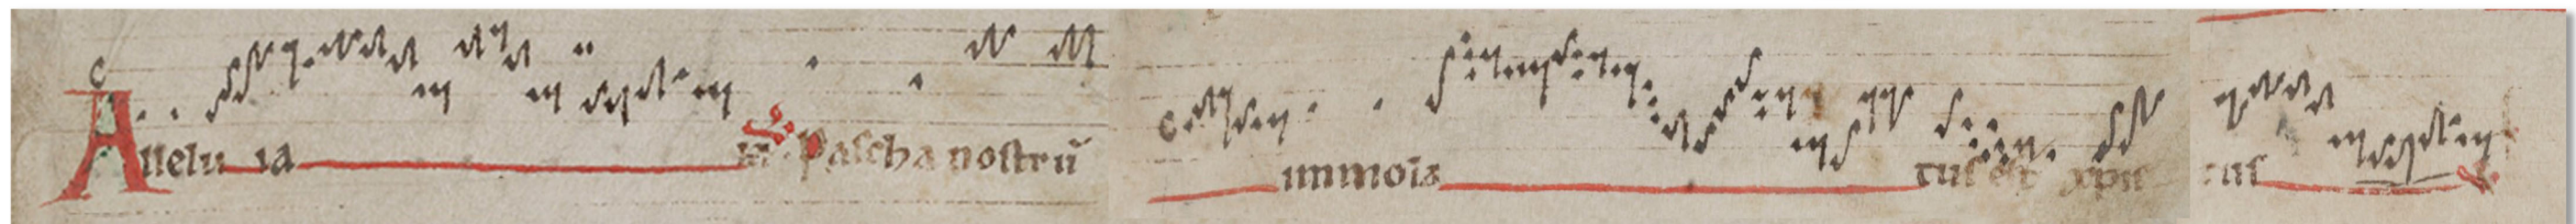 Allelu ia ℣. Pascha nostrũ immola tus est xpũ tus